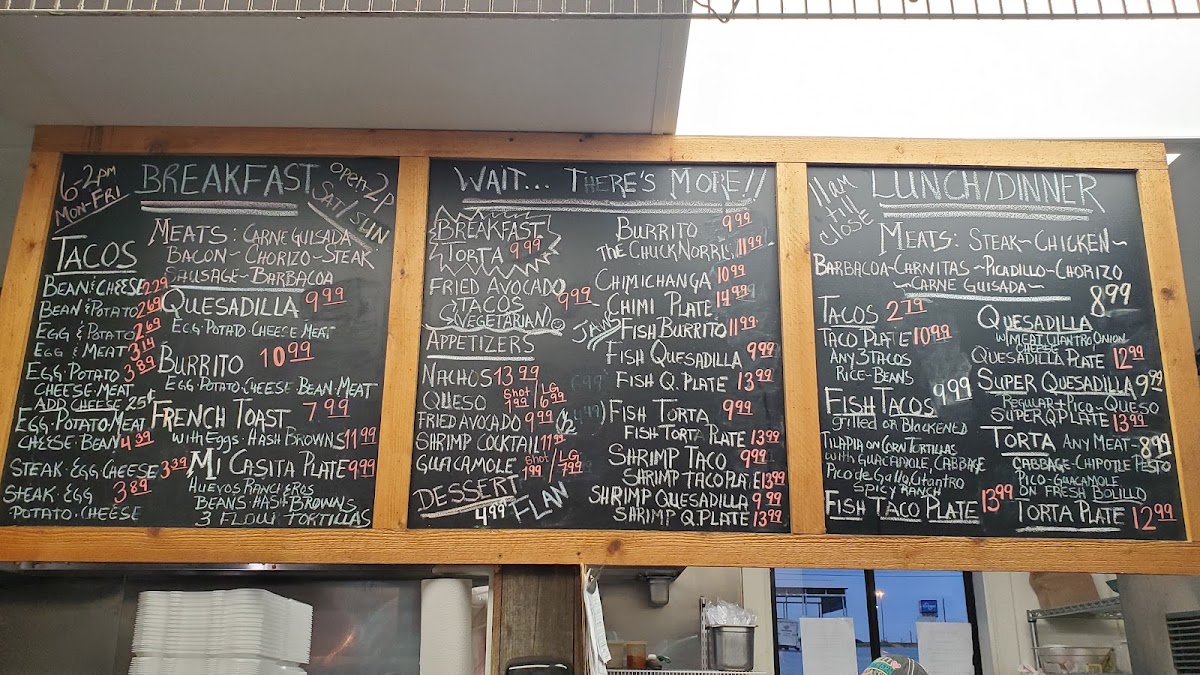 6-2PM
MON-FRI
BREAKFAST
OPEN 2P
SAT/SUN
MEATS: CARNE GUISADA
BACON~CHORIZO-STEAK
SAUSAGE-BARBACOA
TACOS
BEAN & CHEESE 2.29
BEAN & POTATO 2.69
EGG & POTATO 2.69
EGG & MEAT 3.14
EGG·POTATO 3.89
CHEESE·MEAT
ADD CHEESE 25¢
EGG·POTATO·MEAT
CHEESE·BEAN 4.39
STEAK·EGG CHEESE 3.39
STEAK·EGG 3.89
POTATO·CHEESE
QUESADILLA 9.99
EGG·POTATO·CHEESE MEAT
BURRITO 10.99
EGG POTATO·CHEESE BEAN·MEAT
FRENCH TOAST 7.99
WITH EGGS·HASH BROWNS 11.99
MI CASITA PLATE 9.99
HUEVOS RANCHEROS
BEANS HASH BROWNS
3 FLOUR TORTILLAS
WAIT... THERE'S MORE!!
BREAKFAST
TORTA 9.99
FRIED AVOCADO
TACOS 9.99
VEGETARIAN
APPETIZERS
NACHOS 13.99
QUESO Shot 1.99 / LG 6.99
FRIED AVOCADO 9.99
SHRIMP COCKTAIL 11.99
GUACAMOLE Shot 1.99 / LG 7.99
DESSERT
4.99 FLAN
BURRITO 9.99
THE CHUCK NORRIS 11.99
CHIMICHANGA 10.99
CHIMI PLATE 14.99
JAWS
FISH BURRITO 11.99
FISH QUESADILLA 9.99
FISH Q. PLATE 13.99
FISH TORTA 9.99
FISH TORTA PLATE 13.99
SHRIMP TACO 9.99
SHRIMP TACO PLATE 13.99
SHRIMP QUESADILLA 9.99
SHRIMP Q. PLATE 13.99
11am
till
close
LUNCH/DINNER
MEATS: STEAK~CHICKEN~
BARBACOA-CARNITAS~PICADILLO~CHORIZO
~CARNE GUISADA~
TACOS 2.79
TACO PLATE 10.99
ANY 3 TACOS
RICE-BEANS
FISH TACOS 9.99
grilled or BLACKENED
TILAPIA ON CORN TORTILLAS
WITH GUACAMOLE, CABBAGE
PICO de GALLO, Cilantro
SPICY RANCH
FISH TACO PLATE 13.99
QUESADILLA 8.99
W/MEAT CILANTRO ONION
CHEESE
QUESADILLA PLATE 12.99
SUPER QUESADILLA 9.99
REGULAR + PICO~QUESO
SUPER Q PLATE 13.99
TORTA ANY MEAT- 8.99
CABBAGE-CHIPOTLE PESTO
PICO-GUACAMOLE
ON FRESH BOLILLO
TORTA PLATE 12.99